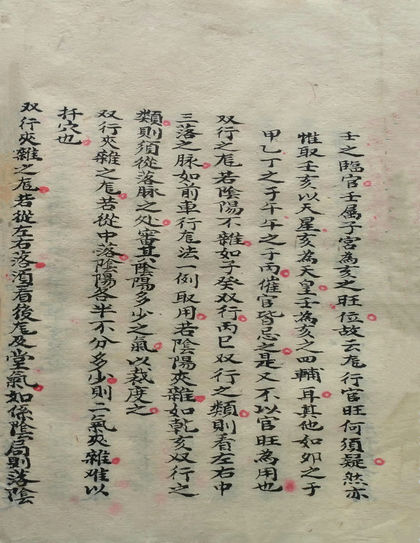 士之臨官士属子宮為亥之旺位故云危行官旺何須疑然亦
惟取壬亥以天星亥為天皇壬為亥之四輔耳其他如卯之于
甲乙丁之于午午之于丙催官皆忌之是又不以官旺為用也
双行之危若陰陽不雜如子癸双行丙巳双行之類則看左右中
三落之脉如前車行危法一例取用若陰陽夾雜如乾亥双行之
類則須從落脉之处審其陰陽多少之氣以裁度之
双行夾雜之危若從中落陰陽各半不分多少則二氣夾雜难以
扦穴也
双行夾雜之危若從左右落濁看後危及堂氣如係陰局則落陰